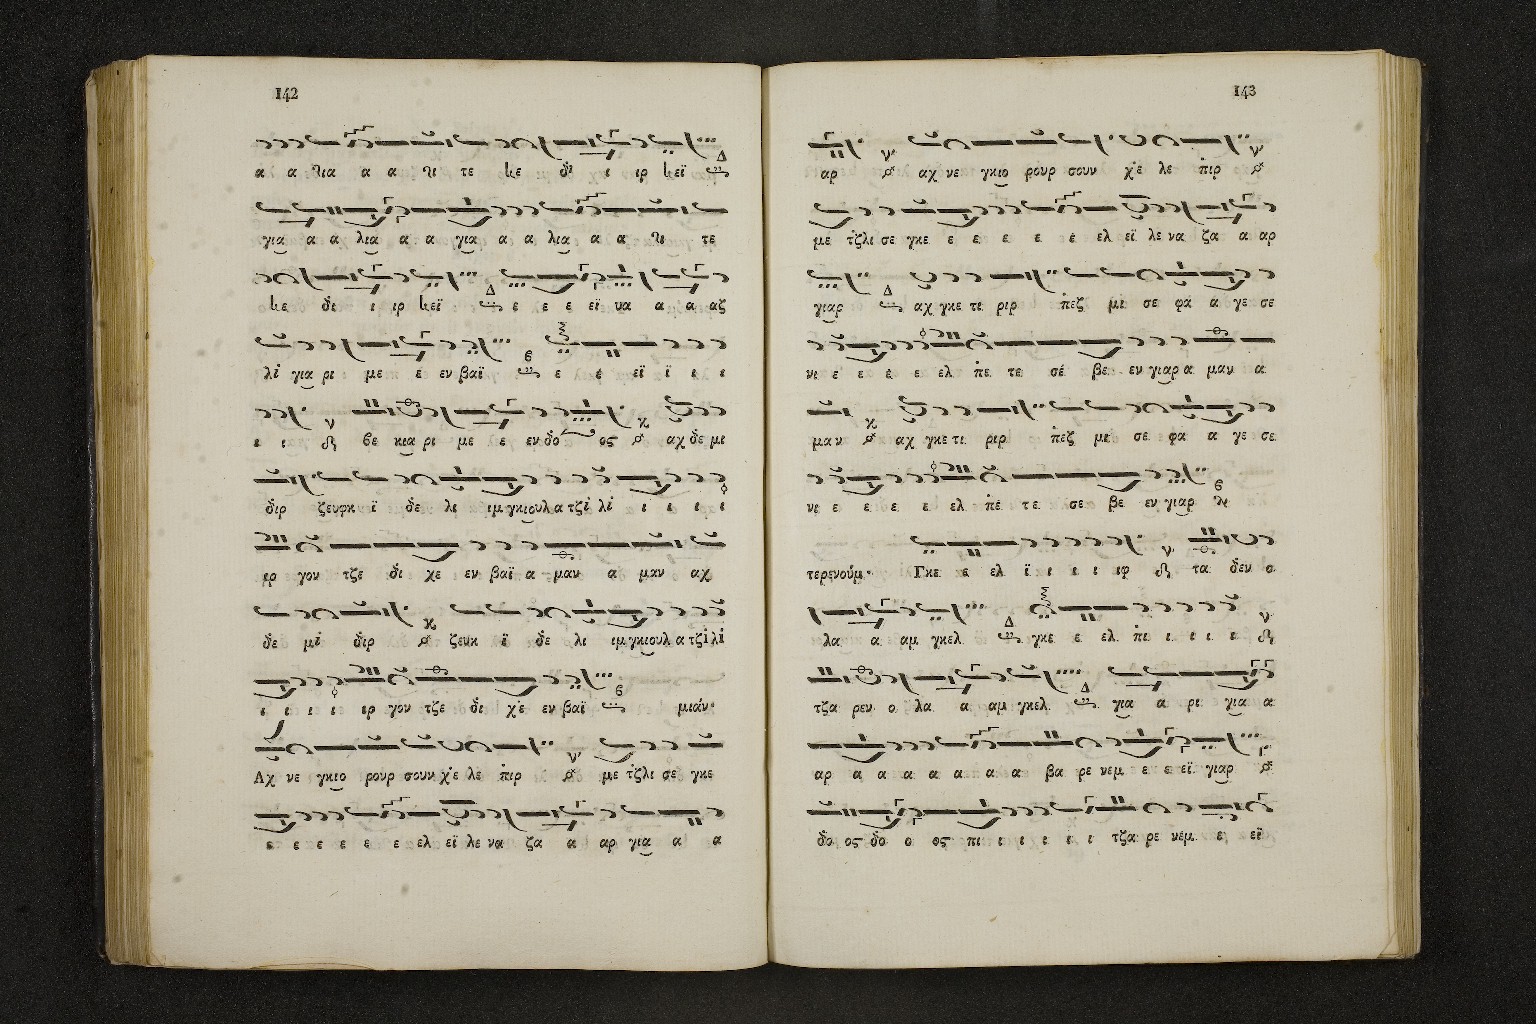 142
α α λια α α λι τε ke δι ι ιρ keϊ
για α α λια α α για α α λια α α λι τε
ke δι ι ιρ keϊ ε ε ε εϊ να α α αζ
λι για ρι με ε εν βαϊ ε ε εϊ ϊ ι ι
ι ι βε κια ρι με ε εν δο ος αχ δε μι
διρ ζευφκ ϊ δε λι ιμ γκιουλ α τζι λι ι ι ι ι
ιρ γον τζε δι χε εν βαϊ α μαν α μαν αχ
δε μι διρ ζευκ ϊ δε λι ιμ γκιουλ α τζι λι
ι ι ι ι ιρ γον τζε δι χε εν βαϊ μιάν
Αχ νε γκιο ρουρ σουν χε λε πιρ με τζλι σε γκε
ε ε ε ε ε ε ελ εϊ λε να ζα α αρ για α α
143
αρ αχ νε γκιο ρουρ σουν χε λε πιρ
με τζλι σε γκε ε ε ε ε ε ελ εϊ λε να ζα α αρ
γιαρ αχ γκε τι ριρ πεζ μι σε φα α γε σε
νι ε ε ε ε ελ πε τε σέ βε εν γιαρ α μαν α
μαν αχ γκε τι ριρ πεζ μι σε φα α γε σε
νι ε ε ε ε ελ πέ τε σε βε εν γιαρ
τερενούμ· Γκε ε ελ ϊ ι ι ι ιφ τα δεν ο
λα α αμ γκελ γκε ε ελ πι ι ι ι ι
τζα ρεν ο λα α αμ γκελ για α ρι για α
αρ α α α α α α α βα ρε νεμ ε ε εϊ γιαρ
δο ος δο ο ος πι ι ι ι ι ι τζα ρε νεμ ε εϊ